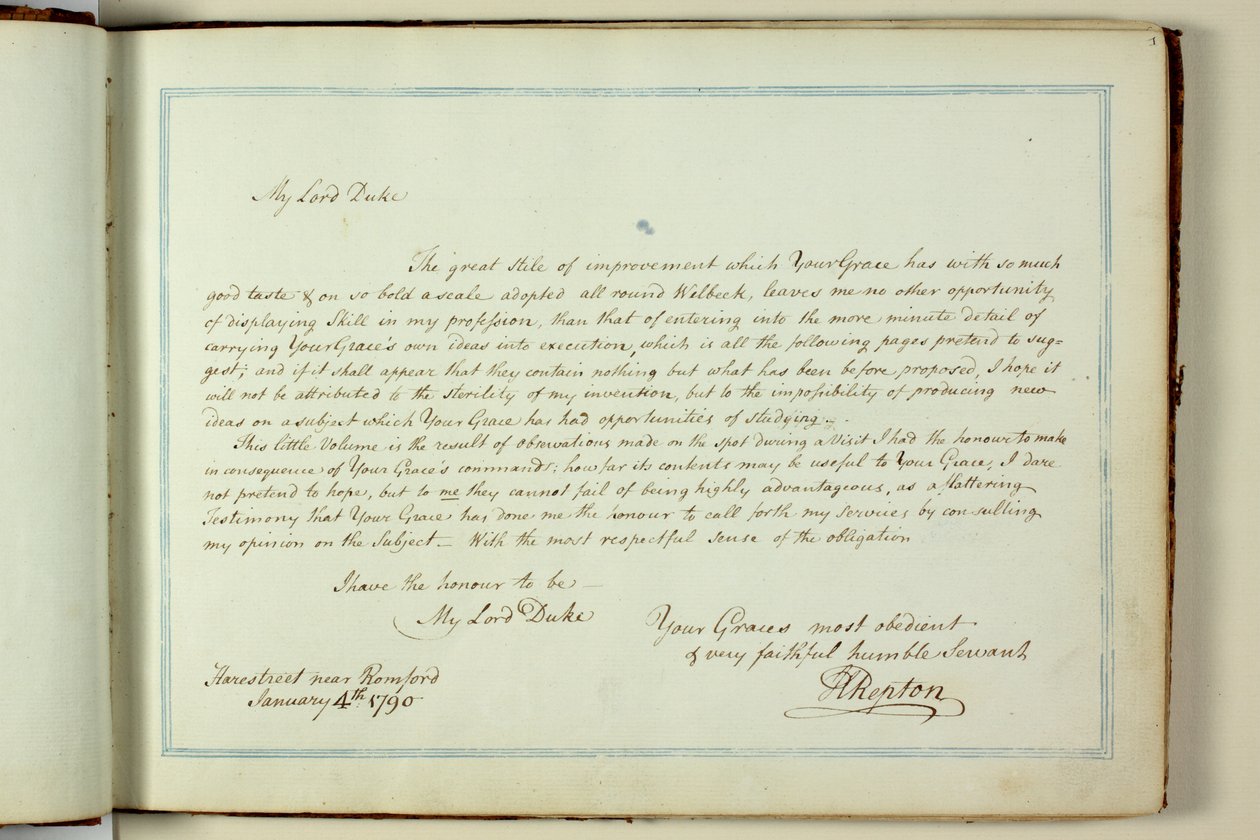 1
My Lord Duke
The great stile of improvement which Your Grace has with so much
good taste & on so bold a scale adopted all round Welbeck, leaves me no other opportunity
of displaying Skill in my profession, than that of entering into the more minute detail of
carrying Your Grace's own ideas into execution, which is all the following pages pretend to sug=
gest; and if it shall appear that they contain nothing but what has been before proposed, I hope it
will not be attributed to the sterility of my invention, but to the impossibility of producing new
ideas on a subject which Your Grace has had opportunities of studying.
This little Volume is the result of observations made on the spot during a Visit I had the honour to make
in consequence of Your Grace's commands; how far its contents may be useful to Your Grace, I dare
not pretend to hope, but to me they cannot fail of being highly advantageous, as a flattering
Testimony that Your Grace has done me the honour to call forth my services by consulting
my opinion on the Subject_ With the most respectful sense of the obligation
I have the honour to be _
My Lord Duke
Your Graces most obedient
& very faithful humble Servant
HRepton
Harestreet near Romford
January 4th. 1790